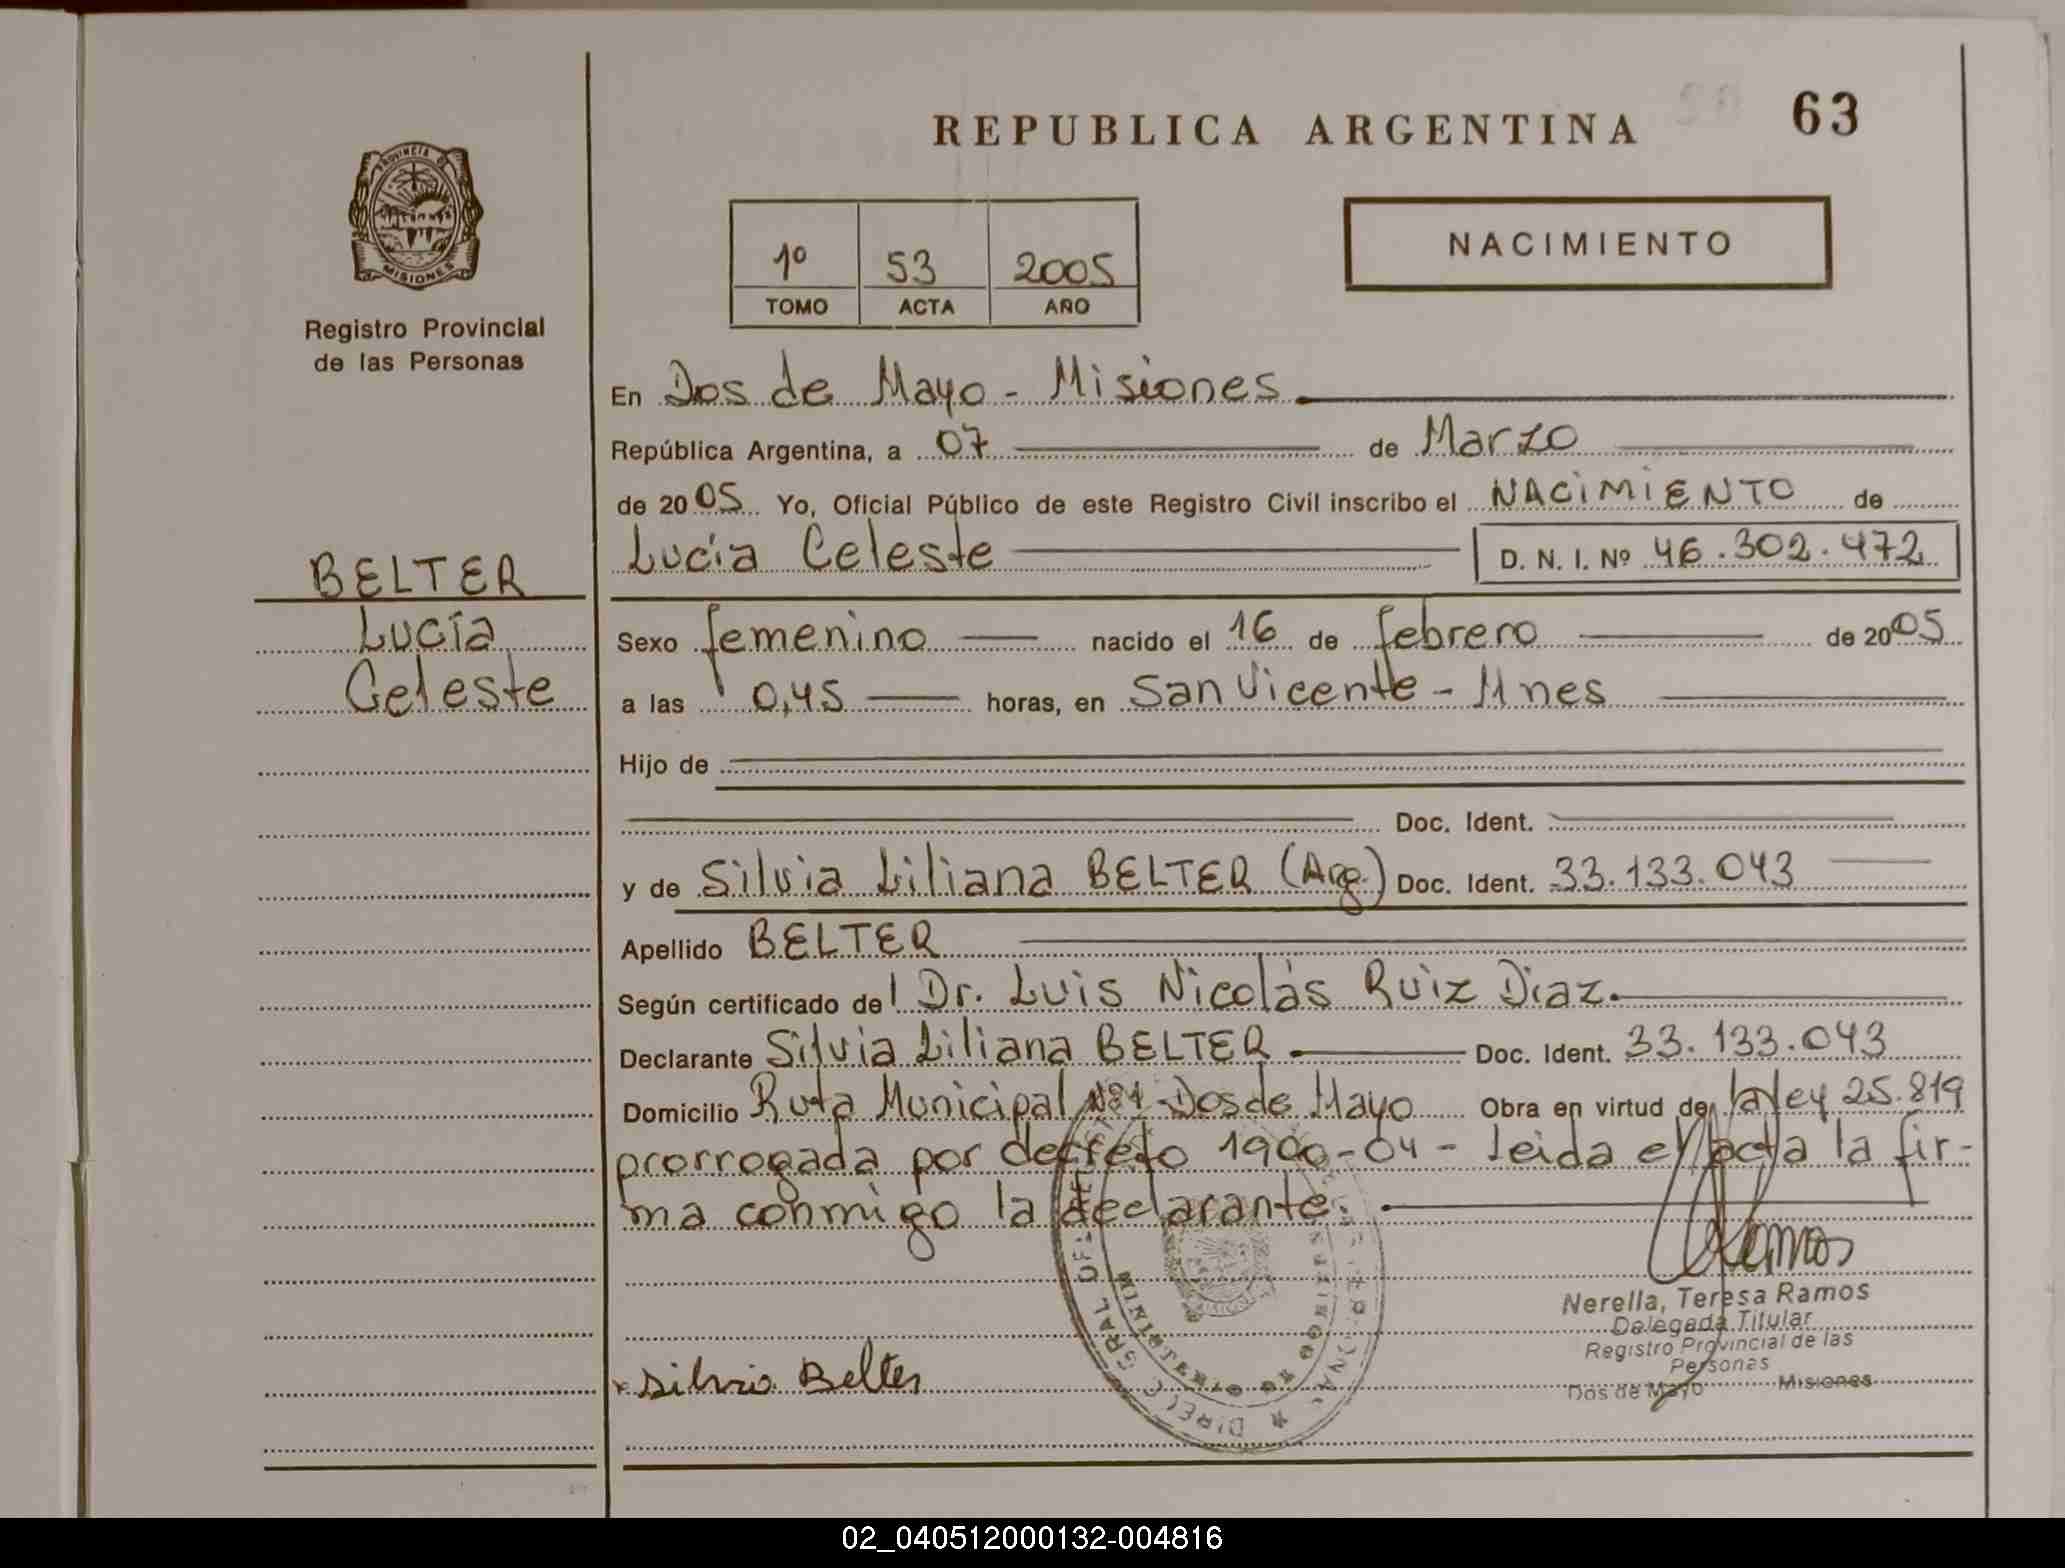 REPUBLICA ARGENTINA
63
PROVINCIA D
MISIONES
Registro Provincial
de las Personas
1º 53 2005
TOMO ACTA AÑO
NACIMIENTO
En Dos de Mayo - Misiones
República Argentina, a 07 de Marzo
de 2005 Yo, Oficial Público de este Registro Civil inscribo el NACIMIENTO de
Lucía Celeste D. N. I. Nº 46.302.472
BELTER
Lucía
Celeste
Sexo femenino nacido el 16 de febrero de 2005
a las 0,45 horas, en San Vicente - Mnes
Hijo de
Doc. Ident.
y de Silvia Liliana BELTER (Arg.) Doc. Ident. 33.133.043
Apellido BELTER
Según certificado del Dr. Luis Nicolás Ruiz Diaz.
Declarante Silvia Liliana BELTER Doc. Ident. 33.133.043
Domicilio Ruta Municipal Nº1 - Dos de Mayo Obra en virtud de la ley 25.819
prorrogada por decreto 1900-04 - leida el acta la fir-
ma conmigo la declarante.
Ramos
Nerella, Teresa Ramos
Delegada Titular
Registro Provincial de las
Personas
Dos de Mayo Misiones
Silvia Belter
02_040512000132-004816